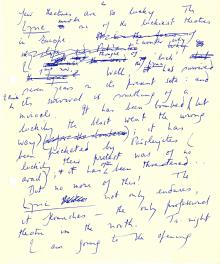 few theatres are so lucky. The
Lyric must one of the luckiest theatres
in Europe
luck
Well it has survived
seven years in its present site: and
I think its survival is something of a
miracle. It has been bombed (but
luckily the blast went the wrong
way) it has
been picketed by Paisleyites (
luckily their protest was of no
avail); it has been threatened...
But no more of this! The
Lyric not only endures,
it flourishes - the only professional
theatre in the north. To night
I am going to the opening